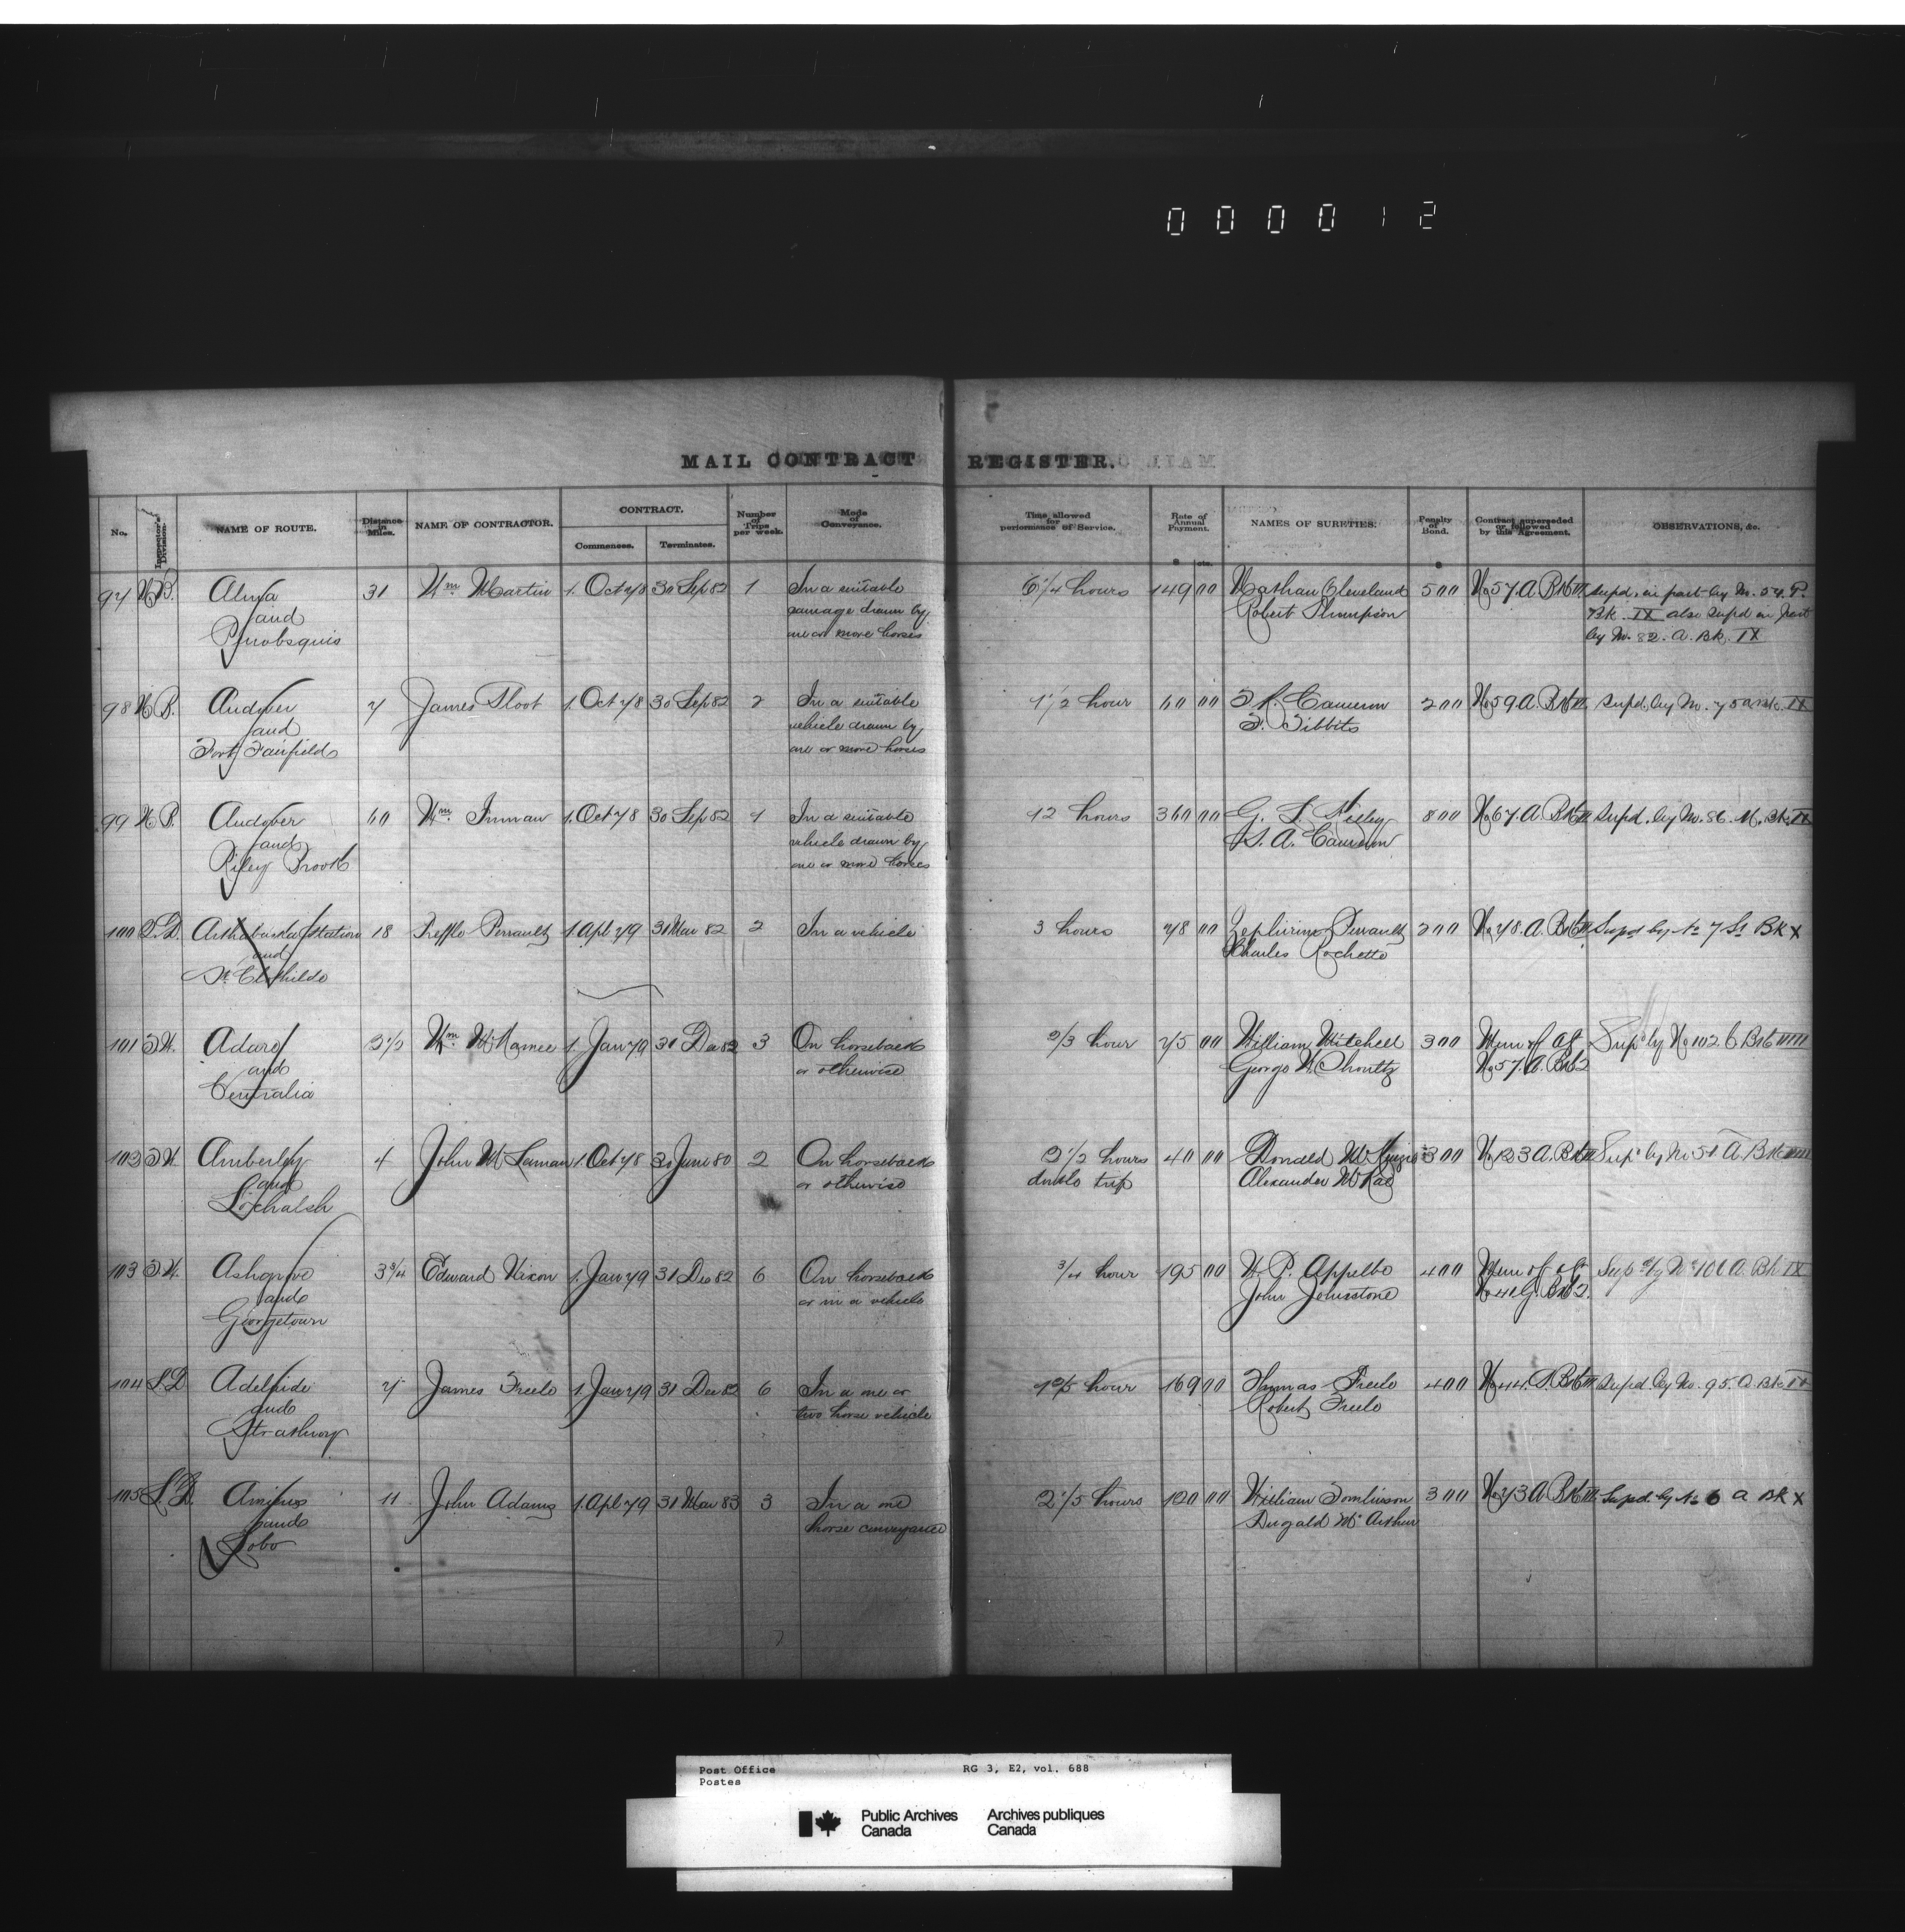 000012
MAIL CONTRACT REGISTER.
No. Inspector's Division. NAME OF ROUTE. Distance in Miles. NAME OF CONTRACTOR. CONTRACT. Commences. Terminates. Number of Trips per week. Mode of Conveyance. Time allowed for performance of Service. Rate of Annual Payment. NAMES OF SURETIES. Penalty of Bond. Contract superseded or followed by this Agreement. OBSERVATIONS, &c.
cts.
97 N.B. Alma 31 Wm Martin 1. Oct 78 30 Sep 82 1 In a suitable 6 1/4 hours 149 00 Nathan Cleveland 500 No 57. A. Bk III Supd. in part by No. 54. P.
and carriage drawn by Robert Thompson Bk. IX also Supd in part
Penobsquis one or more horses by No. 82. A. Bk. IX
98 N.B. Andover 7 James Sloot 1. Oct 78 30 Sep 82 2 In a suitable 1 1/2 hour 60 00 Cameron 200 No 59. A. Bk III Supd. by No. 75 A Bk. IX
and vehicle drawn by Tibbits
Fort Fairfield one or more horses
99 N.B. Andover 60 Wm Inman 1. Oct 78 30 Sep 82 1 In a suitable 12 hours 360 00 800 No 67. A. Bk III Supd. by No. 86. M. Bk. IX
and vehicle drawn by A. Cameron
Riley Brook one or more horses
100 Q.D. Arthabaska Station 18 Treffle Perrault 1 Apl 79 31 Mar 82 2 In a vehicle 3 hours 78 00 Zephirin Perrault 200 No 78. A. Bk III Supd by No 7 St Bk X
and Charles Rochette
St. Clothilde
101 T.W. Adare 3 1/2 Wm McNamee 1. Jan 79 31 Dec 82 3 On horseback 2/3 hour 75 00 William Mitchell 300 Mem of agt Supd by No 102 C Bk IIIIII
and or otherwise George W. No 57. A. Bk 2
Centralia
102 T.W. Amberley 4 John McLennan 1. Oct 78 30 June 80 2 On horseback 2 1/2 hours 40 00 Donald 300 No 123 A. Bk III Supd by No 51 A. Bk
and or otherwise double trip Alexander McRae
Lochalsh
103 T.W. Ashgrove 3 3/4 Edward Nixon 1. Jan 79 31 Dec 82 6 On horseback 3/4 hour 195 00 W. P. Appelbe 400 Mem of agt Supd by No 101 A. Bk IX
and or in a vehicle John Johnstone No 41 G. Bk 2.
Georgetown
104 L.D. Adelaide 7 James Freele 1. Jan 79 31 Dec 82 6 In a one or 1 2/5 hour 169 00 Thomas Freele 400 No 44. A. Bk III Supd. by No. 95. A. Bk IX
and two horse vehicle Robert Freele
Strathroy
105 L.D. Amiens 11 John Adams 1. Apl 79 31 Mar 83 3 In a one 2 1/5 hours 120 00 William Tomlinson 300 No 73 A Bk III Supd. by No 6 A Bk X
and horse conveyance Dugald McArthur
Lobo
Post Office RG 3, E2, vol. 688
Postes
Public Archives Archives publiques
Canada Canada